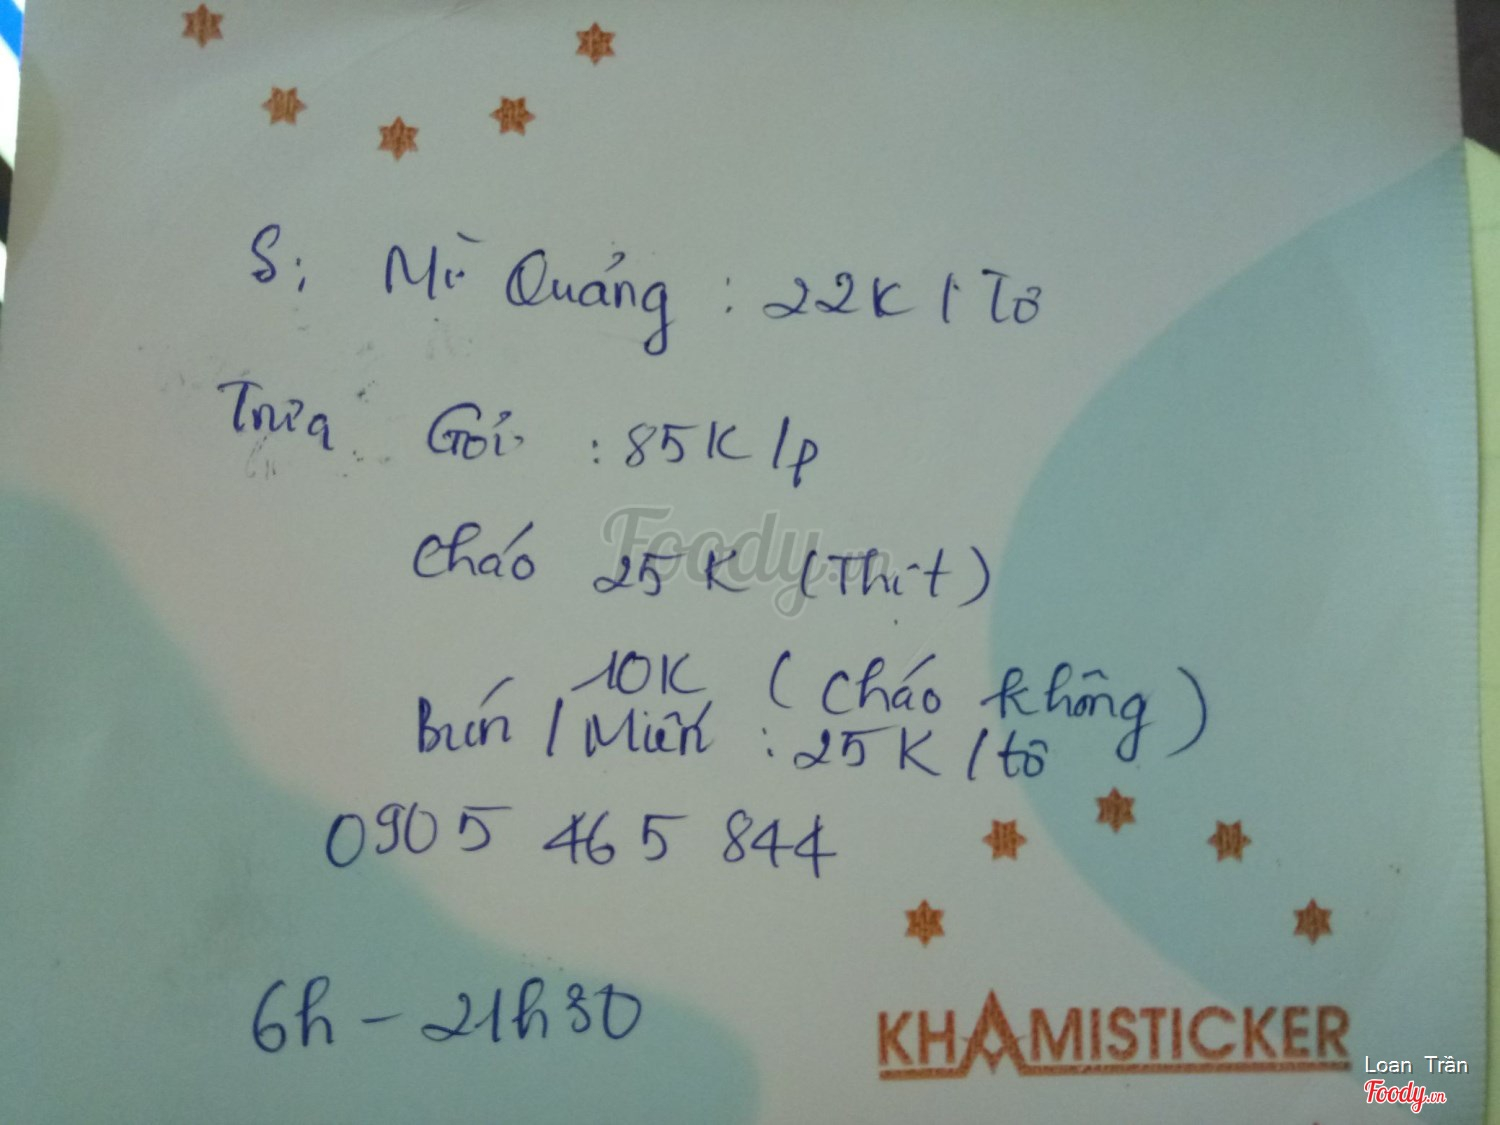 S: Mì Quảng : 22K / Tô
Trưa Gỏi : 85K /p
Cháo 25K (Thịt)
10K (Cháo không)
Bún / Miến : 25K / tô
0905 465 844
6h - 21h30
KHAMISTICKER
Foody.vn
Loan Trần
Foody.vn